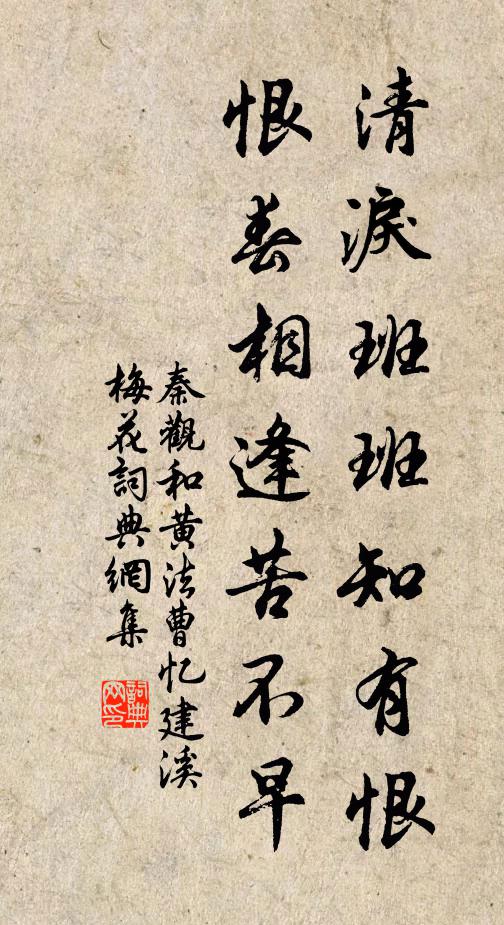 清淚班班知有恨
恨春相逢苦不早
秦觀和黃法曹忆建溪
梅花詞典網集
詞典网印